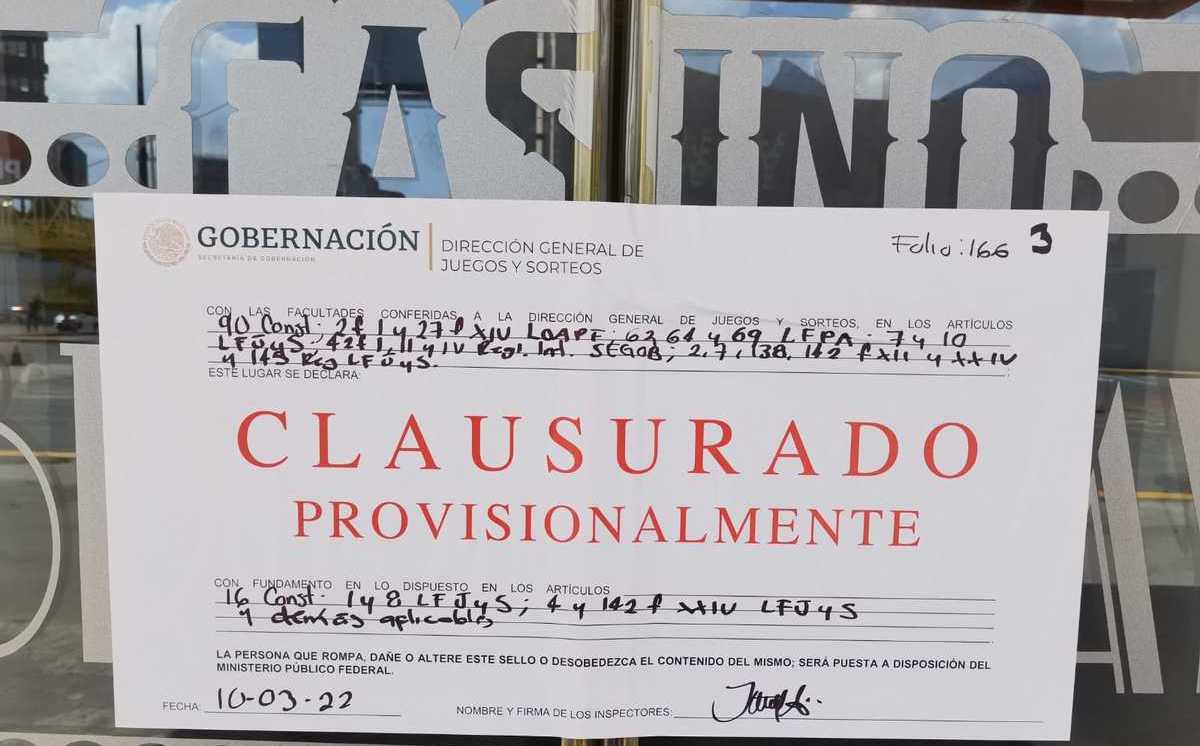 CASINO
GOBERNACIÓN
SECRETARÍA DE GOBERNACIÓN
DIRECCIÓN GENERAL DE
JUEGOS Y SORTEOS
Folio: 166 3
CON LAS FACULTADES CONFERIDAS A LA DIRECCIÓN GENERAL DE JUEGOS Y SORTEOS, EN LOS ARTÍCULOS
90 Const; 2 f 1 y 27 f XIV LOAPF; 62 64 y 69 LFPA; 7 y 10
LFJyS; 42 f 1, 11 y IV Regl. Int. SEGOB; 2, 7, 138, 142 f XII y XXIV
y 148 Reg LFJyS.
ESTE LUGAR SE DECLARA:
CLAUSURADO
PROVISIONALMENTE
CON FUNDAMENTO EN LO DISPUESTO EN LOS ARTÍCULOS
16 Const. 1 y 8 LFJyS; 4 y 142 f XXIV LFJyS
y demás aplicables
LA PERSONA QUE ROMPA, DAÑE O ALTERE ESTE SELLO O DESOBEDEZCA EL CONTENIDO DEL MISMO; SERÁ PUESTA A DISPOSICIÓN DEL
MINISTERIO PÚBLICO FEDERAL.
FECHA: 10-03-22
NOMBRE Y FIRMA DE LOS INSPECTORES: